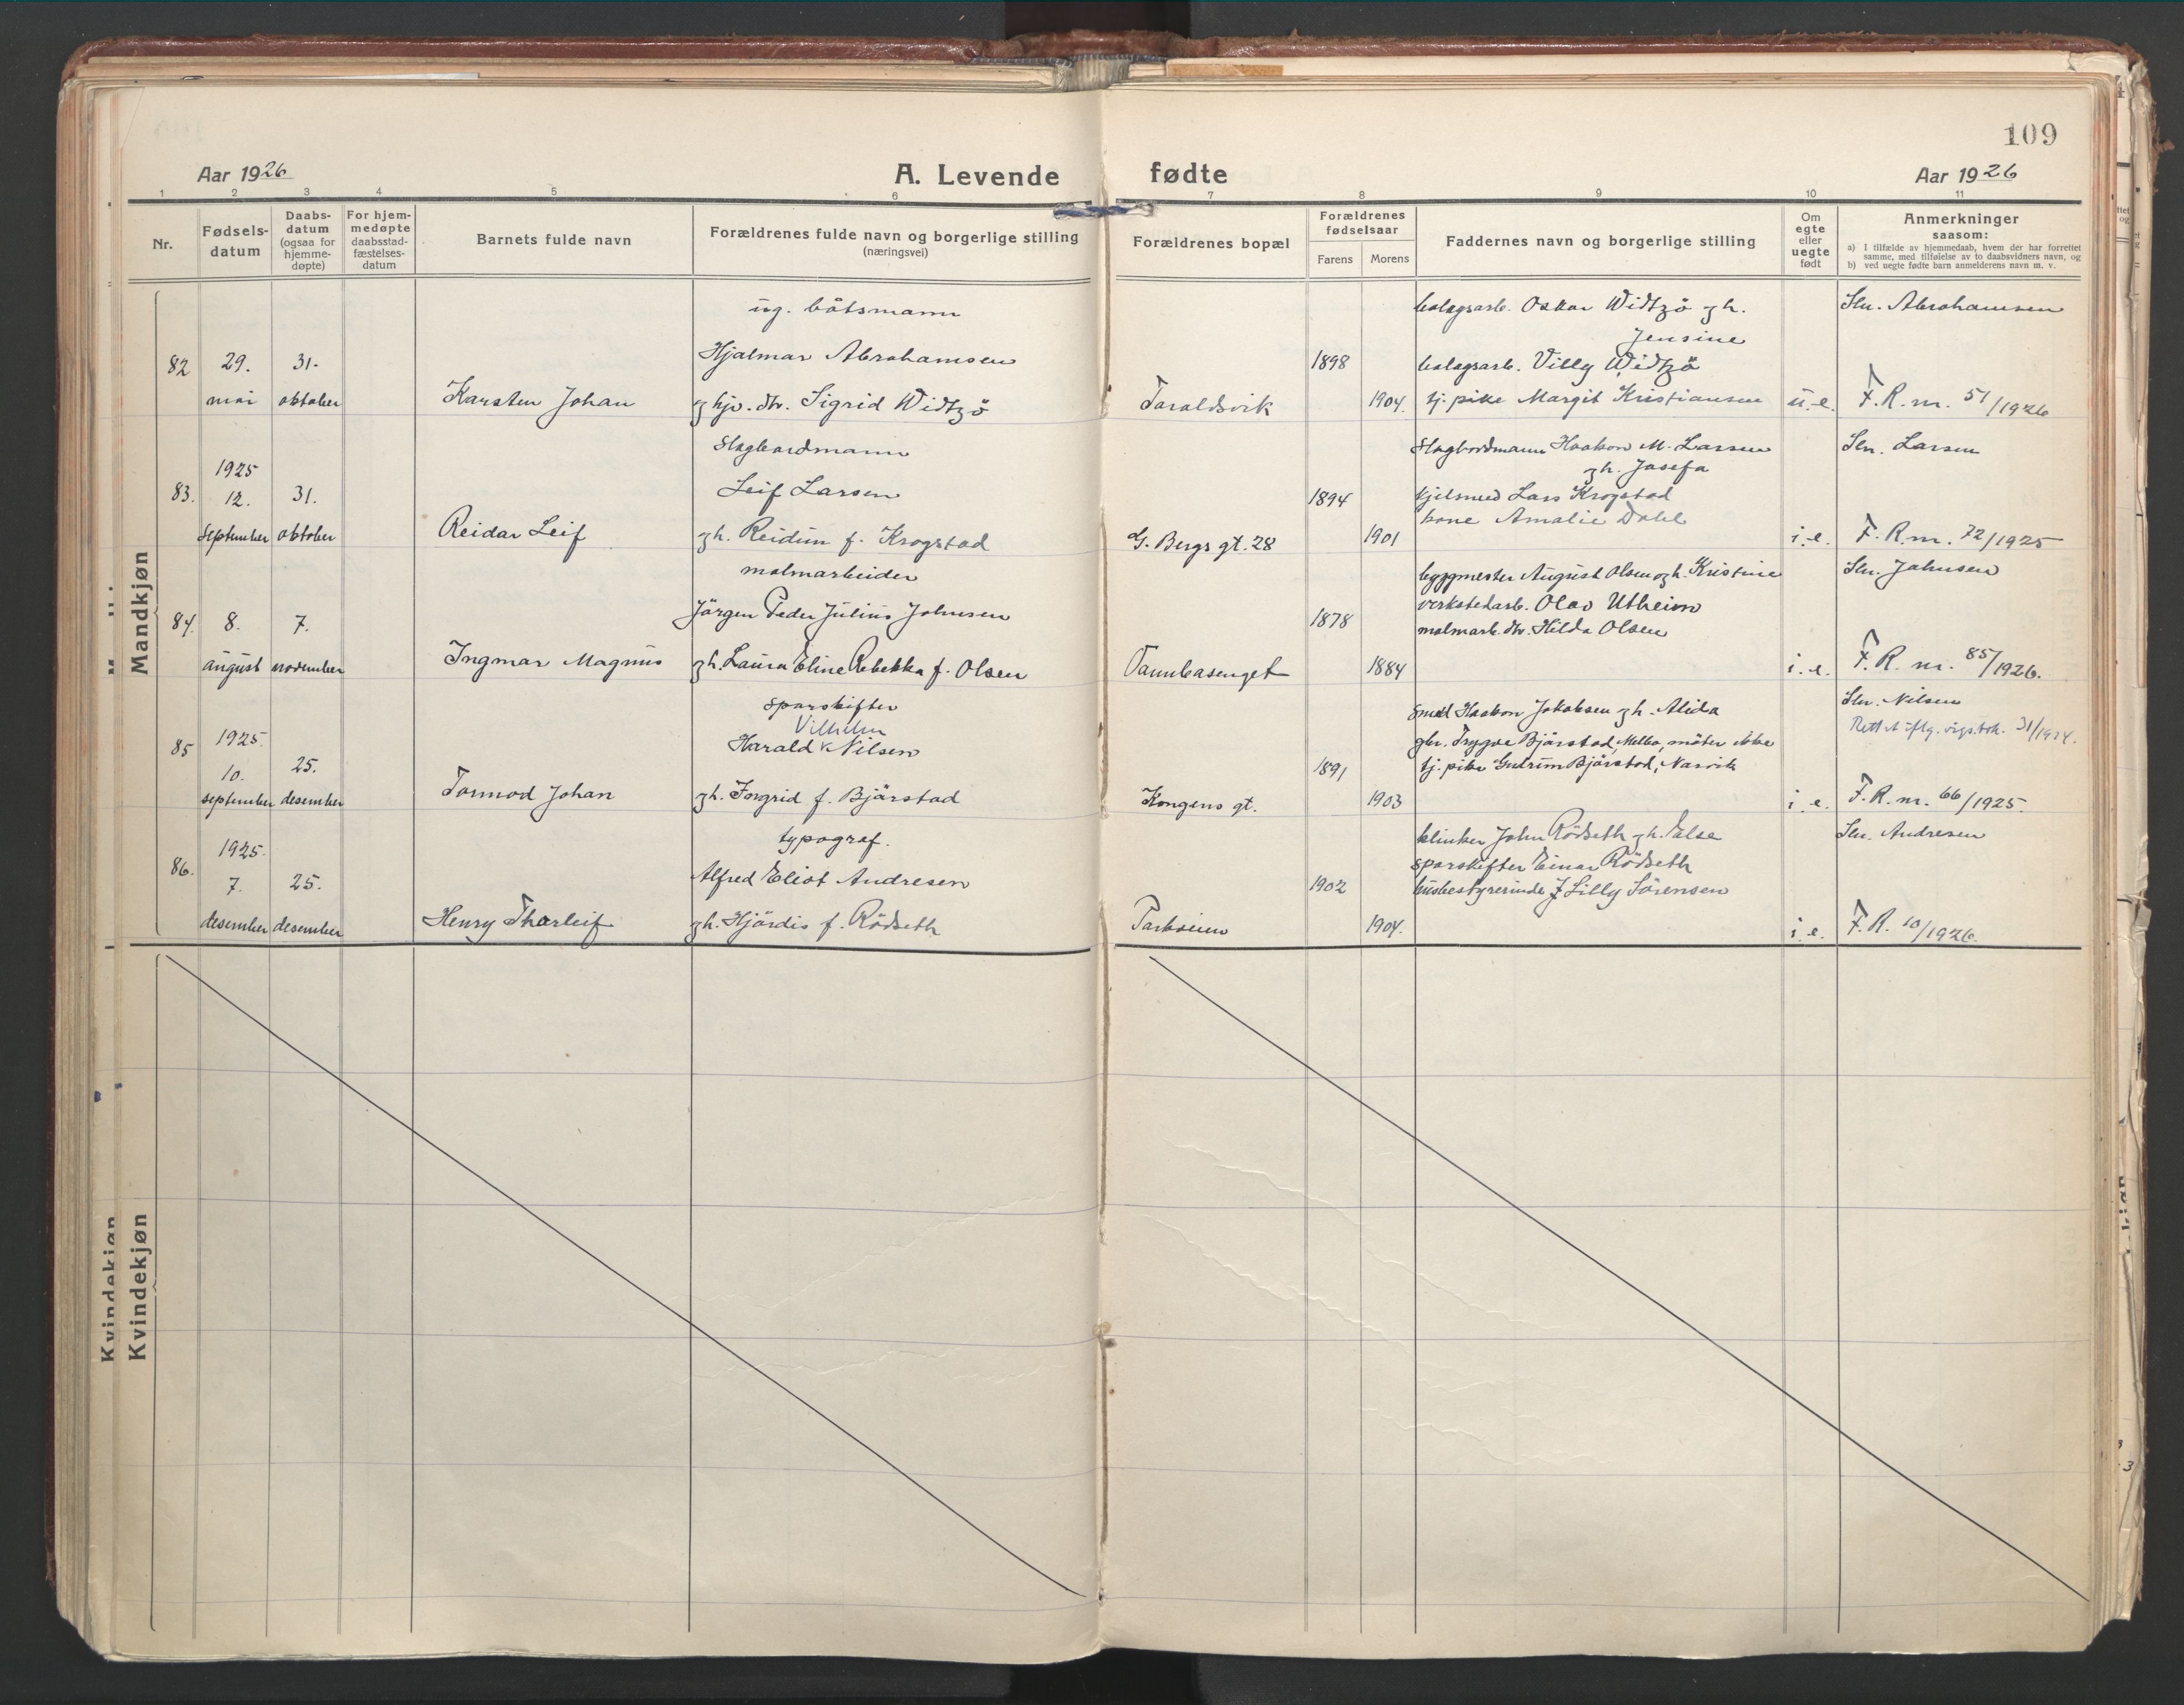 109
Aar 1926
A. Levende fødte
Aar 1926
1 2 3 4 5 6 7 8 9 10 11
Nr.
Fødsels-
datum
Daabs-
datum
(ogsaa for
hjemme-
døpte)
For hjem-
medøpte
daabsstad-
fæstelses-
datum
Barnets fulde navn
Forældrenes fulde navn og borgerlige stilling
(næringsvei)
Forældrenes bopæl
Forældrenes
fødselsaar
Farens Morens
Faddernes navn og borgerlige stilling
Om
egte
eller
uegte
født
Anmerkninger
saasom:
a) I tilfælde av hjemmedaab, hvem der har forrettet
samme, med tilføielse av to daabsvidners navn, og
b) ved uegte fødte barn anmelderens navn m. v.
Mandkjøn
82
29.
mai
31.
oktober
Karsten Johan
ug. båtsmann
Hjalmar Abrahamsen
og hjv. dtr. Sigrid Widtzö
Taraldsvik
1898
1904.
bolagsarb. Oskar Widtzö og h.
Jensine
bolagsarb. Villy Widtzö
tj. pike Margit Kristiansen
u. e.
Sln. Abrahamsen
F. R. nr. 51/1926
83.
1925
12.
september
31.
oktober
Reidar Leif
Slagbordmann
Leif Larsen
og h. Reidun f. Krogstad
G. Bergs gt. 28
1894
1901
Slagbordmann Haakon M. Larsen
og h. Josefa
kjelsmed Lars Krogstad
kone Amalie Dahl
i. e.
Sln. Larsen
F. R. nr. 72/1925
84.
8.
august
7.
november
Ingmar Magnus
malmarbeider
Jörgen Peder Julius Johnsen
og h. Laura Eline Rebekka f. Olsen
1878
1884
byggmester August Olsen og h. Kristine
verkstedarb. Olav Utheim
malmarb. dtr. Hilda Olsen
i. e.
Sln. Johnsen
F. R. nr. 85/1926.
85
1925.
10.
september
25.
desember
Tormod Johan
sporskifter
Vilhelm
Harald Nilsen
og h. Ingrid f. Bjårstad
Kongens gt.
1891
1903
Smed Haakon Jakobsen og h. Alida
gbr. Trygve Bjårstad, Melbo, möter ikke
tj. pike Gudrun Bjårstad, Narvik
i. e.
Sln. Nilsen
Rettet iflg. vigs.bok. 31/1924.
F. R. nr. 66/1925.
86.
1925.
7.
desember
25.
desember
Henry Thorleif
typograf.
Alfred Eliot Andresen
og h. Hjördis f. Rödseth
Parkveien
1902
1904.
klinker John Rödseth og h. Else
sporskifter Einar Rödseth
husbestyrerinde Lilly Sörensen
i. e.
Sln. Andresen
F. R. 10/1926.
Kvindekjøn
Kvindekjøn